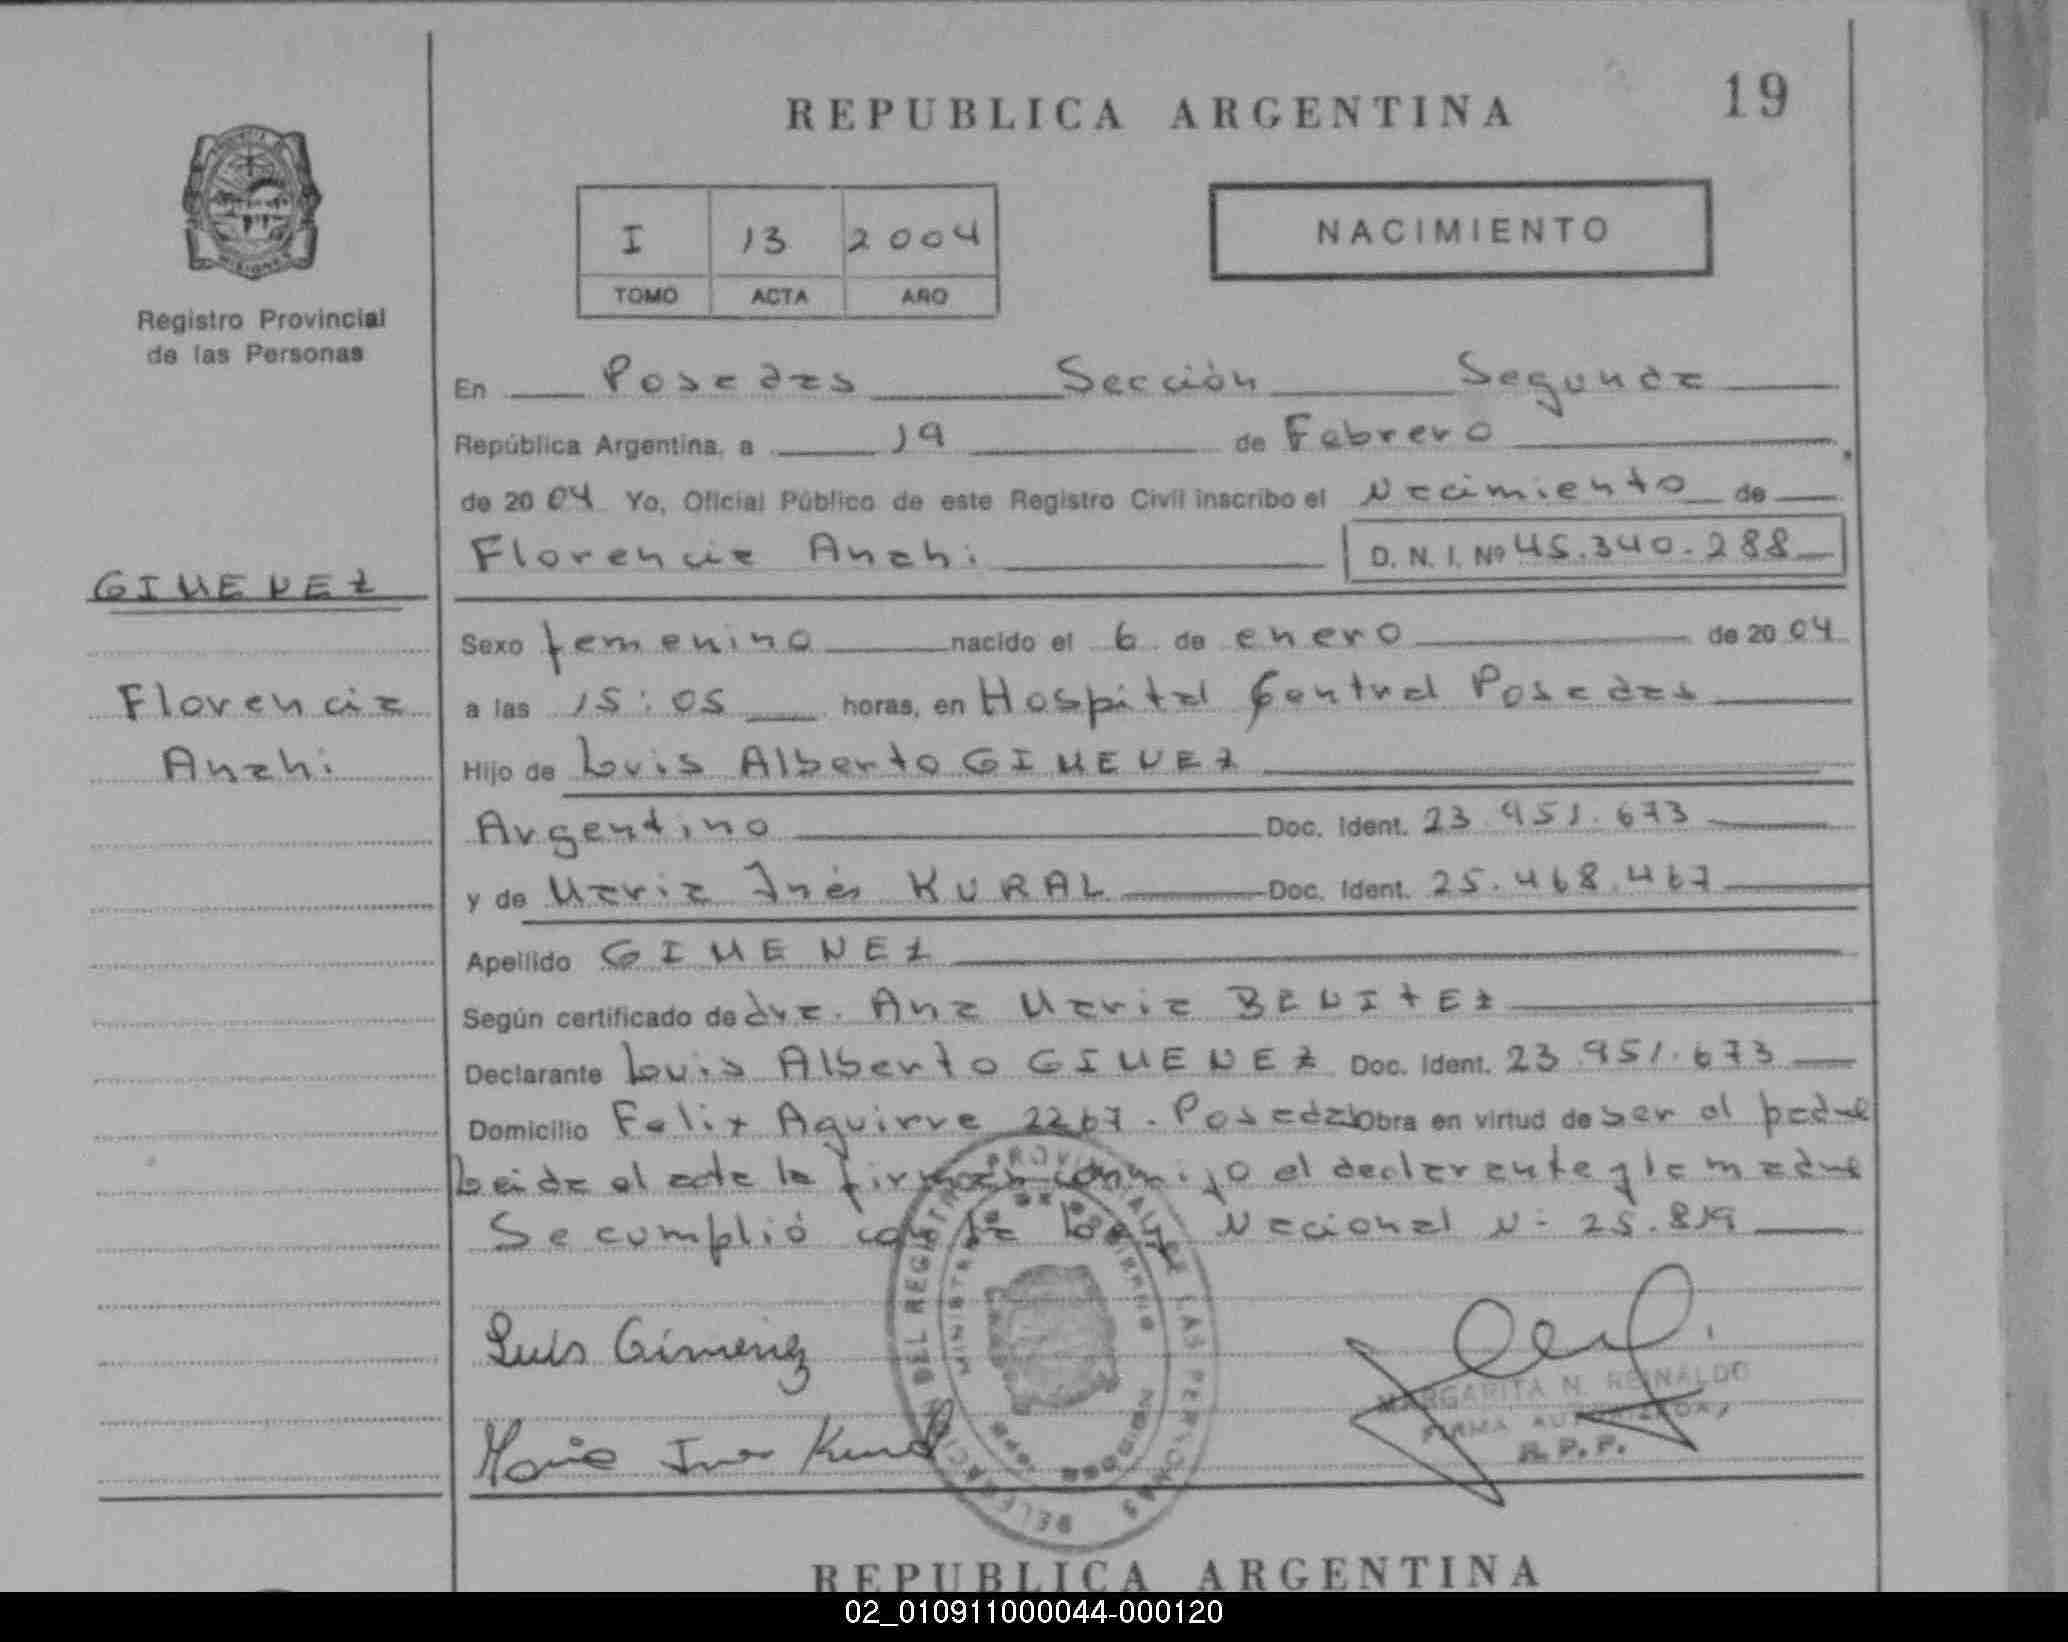 REPUBLICA ARGENTINA
19
I 13 2004
TOMO ACTA AÑO
NACIMIENTO
Registro Provincial
de las Personas
En Posadas Sección Segunda
República Argentina, a 19 de Febrero
de 2004 Yo, Oficial Público de este Registro Civil inscribo el Nacimiento de
Florencia Anahi D. N. I. Nº 45.340.288
GIMENEZ
Florencia
Anahi
Sexo femenino nacido el 6 de enero de 2004
a las 15:05 horas, en Hospital Central Posadas
Hijo de Luis Alberto GIMENEZ
Argentino Doc. Ident. 23.951.673
y de Maria Inés KURAL Doc. Ident. 25.468.467
Apellido GIMENEZ
Según certificado de dra. Ana Maria BENITEZ
Declarante Luis Alberto GIMENEZ Doc. Ident. 23.951.673
Domicilio Felix Aguirre 2267 - Posadas Obra en virtud de ser el padre
Leida el acta la firman conmigo el declarante y la madre
Se cumplió con la Ley Nacional N- 25.819
Luis Gimenez
Maria Ines Kural
MARGARITA N. REINALDO
FIRMA AUTORIZADA
R.P.P.
REPUBLICA ARGENTINA
02_010911000044-000120